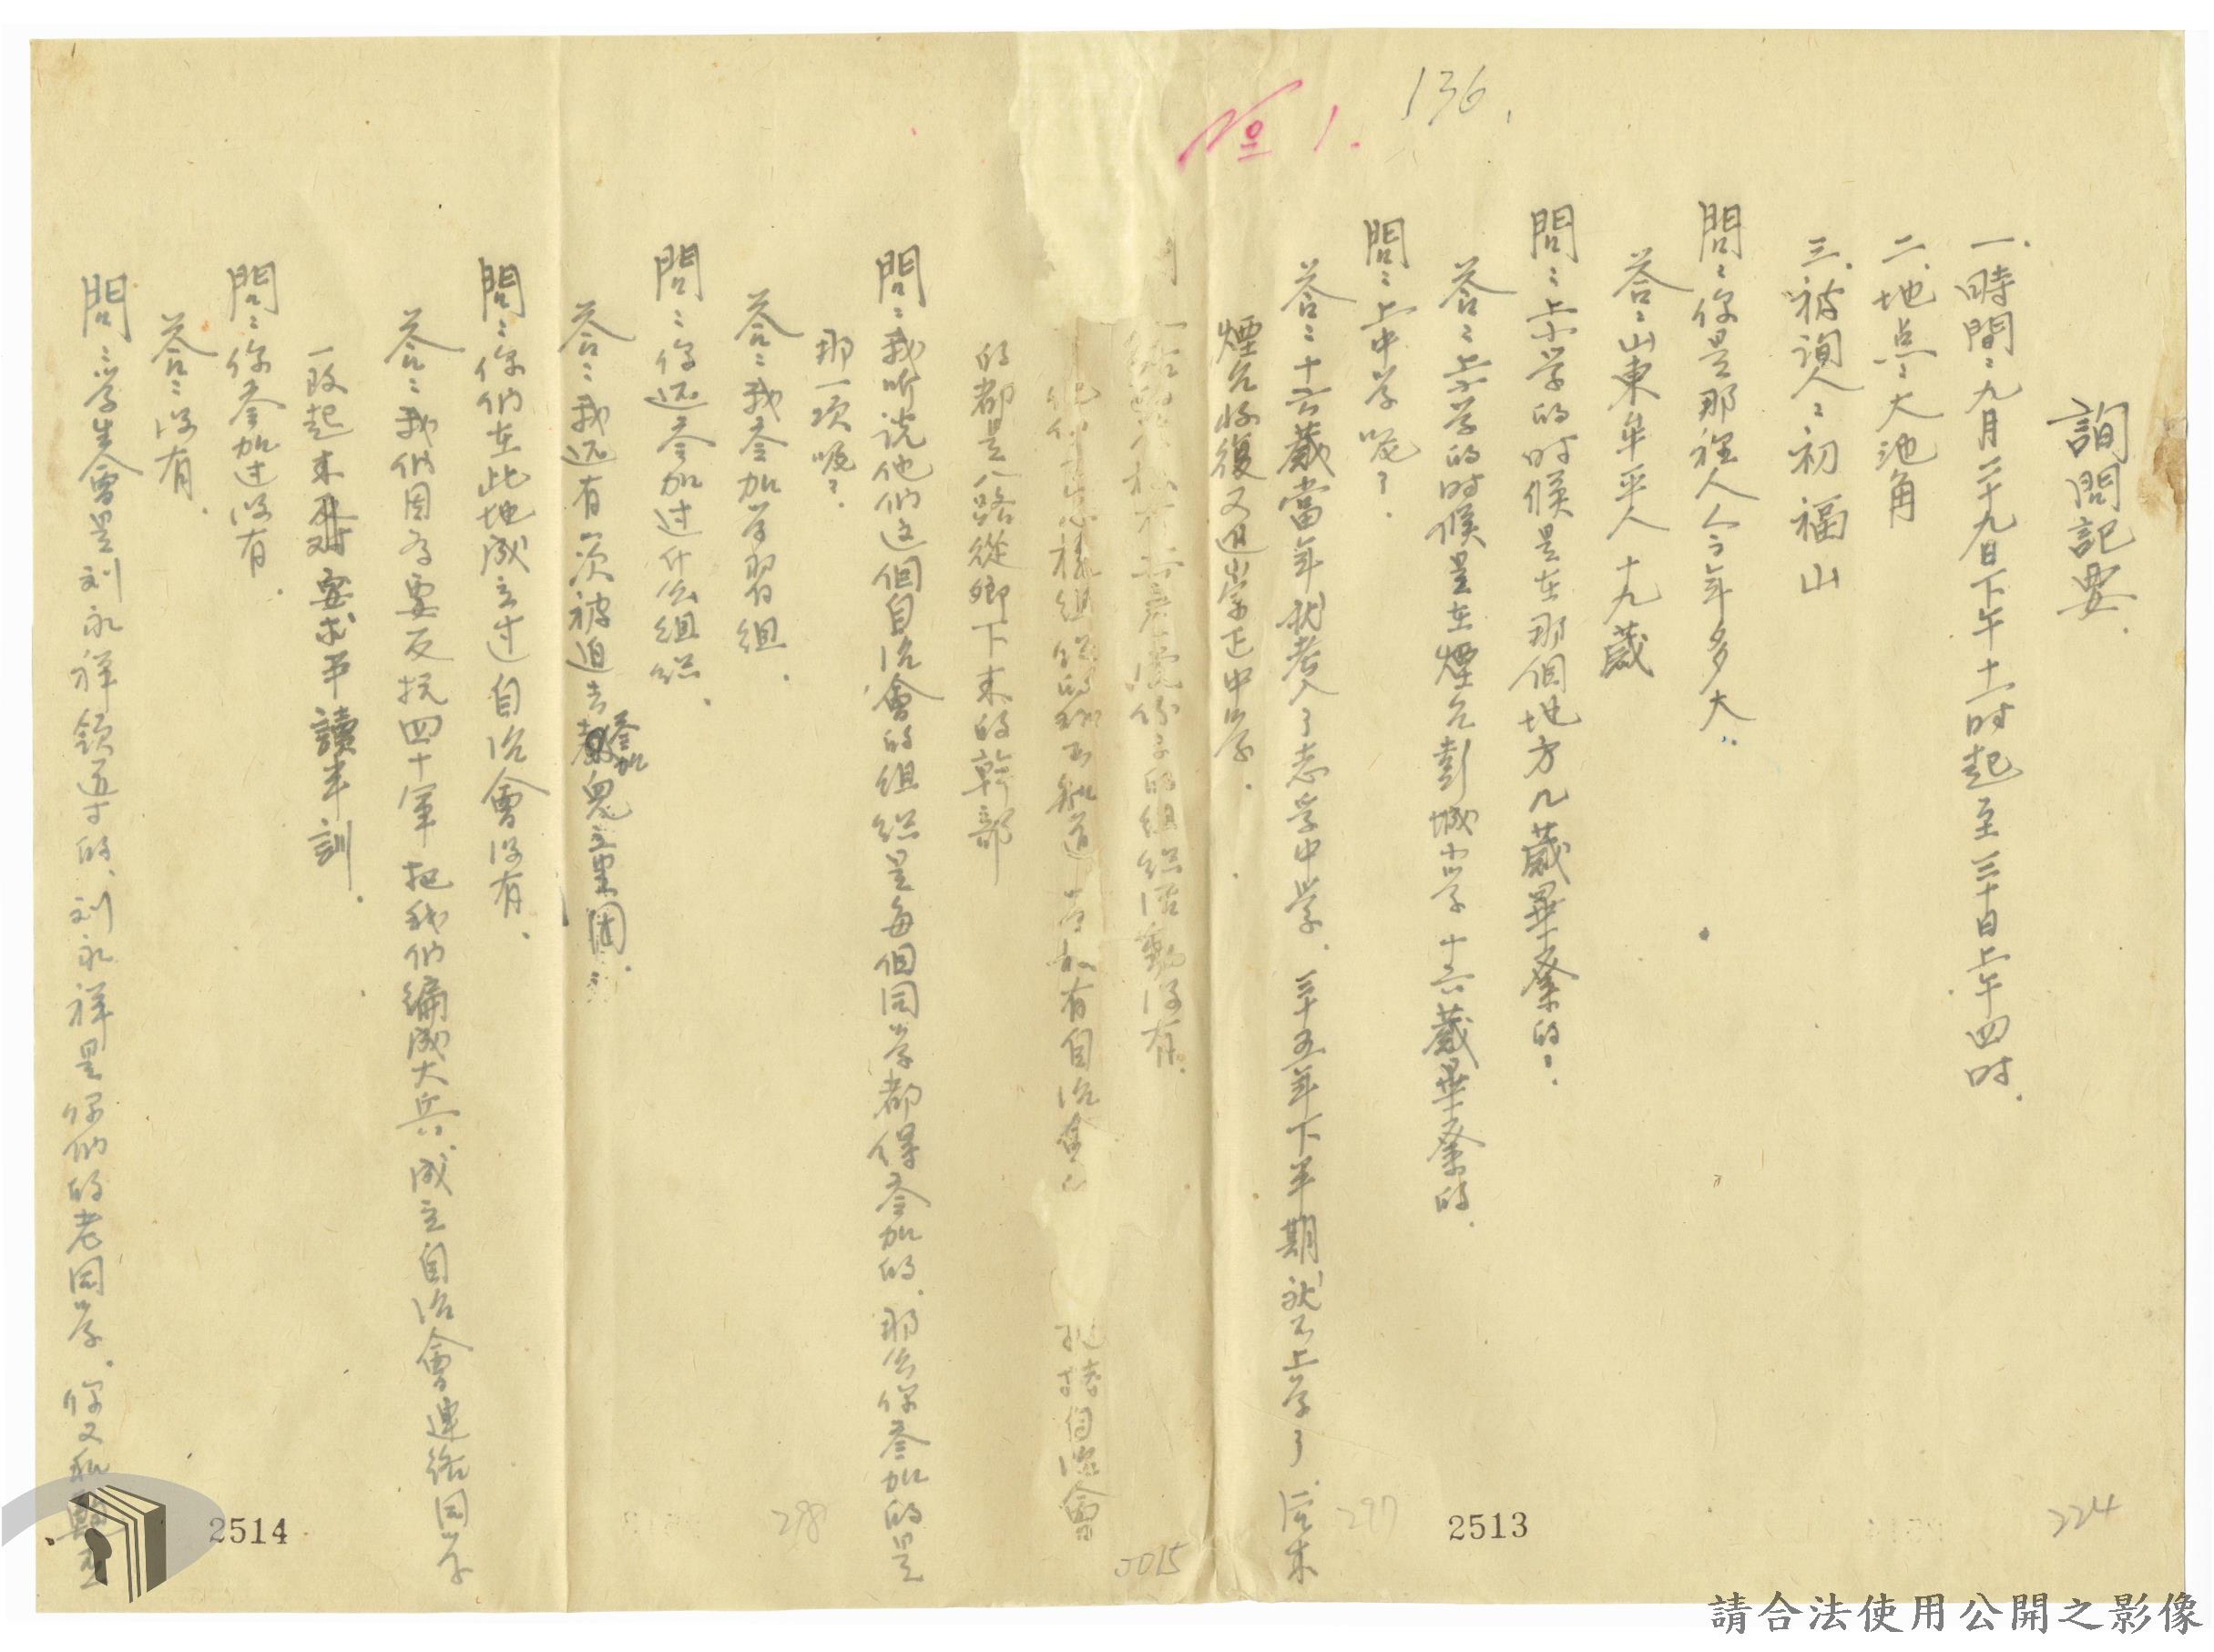 136.
No 1.
詢問記要.
一.時間:九月二十九日下午十一时起至三十日上午四时.
二.地点:大池角
三.被詢人:初福山
問:你是那裡人今年多大.
答:山東牟平人十九歲
問:上小学的时候是在那個地方几歲畢業的?.
答:上小学的时候是在煙台彭城小学十六歲畢業的.
問:上中学呢?.
答:十六歲當年就考入了志孚中学.三十五年下半期就不上学了后来
煙台收復又進崇正中学.
党份子的組織活動没有.
他们怎樣組織的我不知道 有自治會 把持自治會
的都是八路從鄉下来的幹部
問:我听说他们这個自治會的組織是每個同学都得参加的.那么你参加的是
那一项呢?.
答:我参加学習組.
問:你还参加过什么組織.
答:我还有一次被迫去参加兒童團.
問:你们在此地成立过自治會没有.
答:我们因为要反抗四十軍把我们編成大兵.成立自治會連络同学
一致起来要求半讀半訓.
問:你参加过没有.
答:没有.
問:学生會是刘永祥領导的,刘永祥是你们的老同学.你又和
2514
288
J015
297
2513
224
請合法使用公開之影像